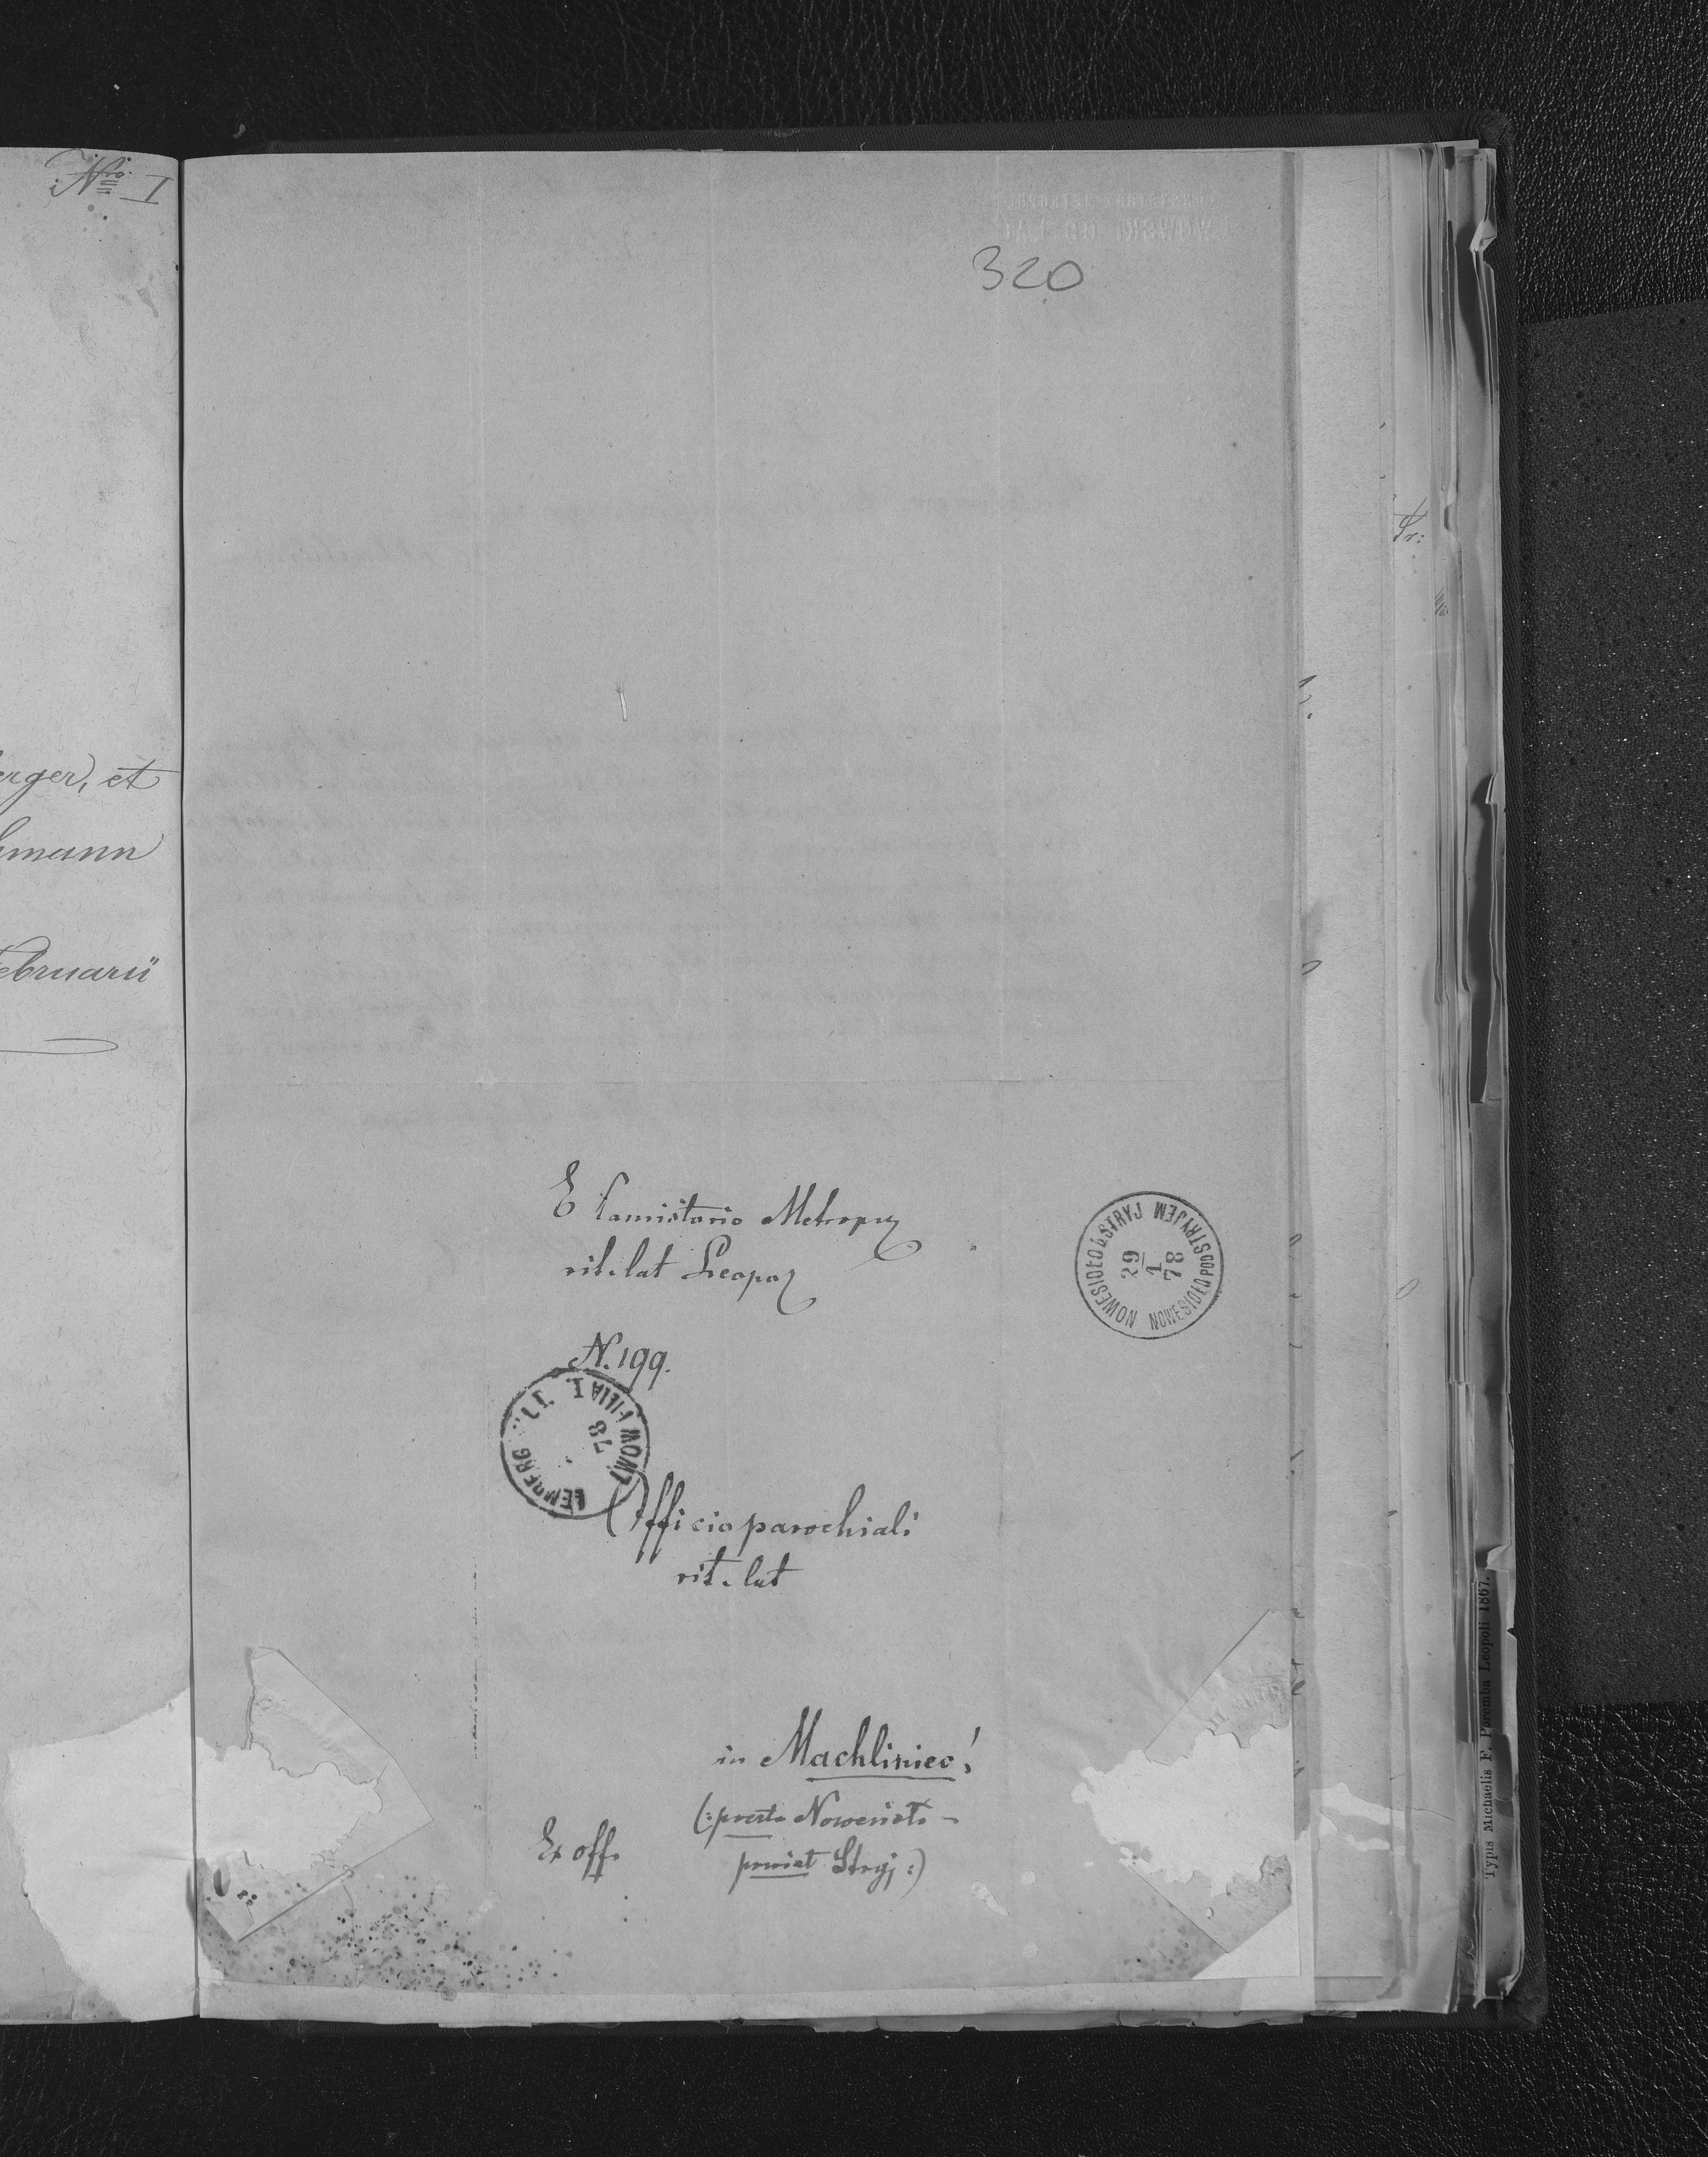 Nro I
erger, et
hmann
ebruarii
320
E Camistorio Metropz
rit. lat Leopoz
N. 199.
LEMBERG LWÓW FILIA I.
78
NOWESIOŁO b. STRYJ NOWESIOŁO POD STRYJEM
29
1
78
Officio parochiali
rit. lat
in Machliniec!
(: poczta Nowesioło –
powiat Stryj :)
Ex off.
Typis Michaelis F. Poremba Leopoli 1867.